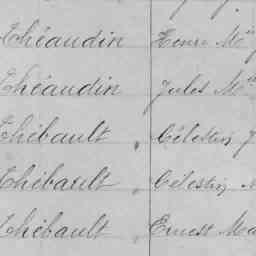 Théaudin Henri M
Théaudin Jules M
Thébault „ Célestin J
Thébault „ Célestin
Thébault „ Ernest Ma